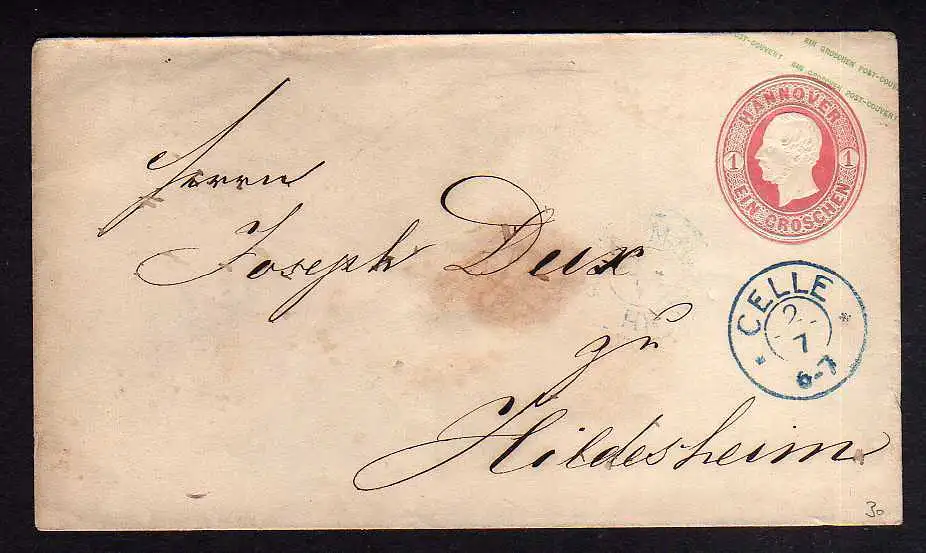 POST-COUVERT EIN GROSCHEN POST-COUV
EIN GROSCHEN POST-COUVERT
HANNOVER
1 1
EIN GROSCHEN
Herrn
Joseph Deux
CELLE
2
7
6-7
zu
Hildesheim
30